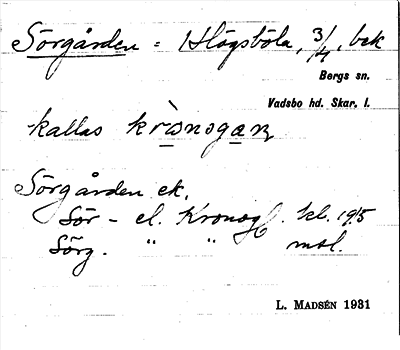 Sörgården = Högsböla, 3/4, bek
Bergs sn.
Vadsbo hd. Skar. l.
kallas krònogaɳ
Sörgården ek.
Sör- el. Kronog. kl. 1915
Sörg. " " msl.
L. MADSÉN 1931